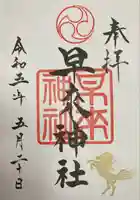 奉拝
早神社
令和五年五月二十日
神社